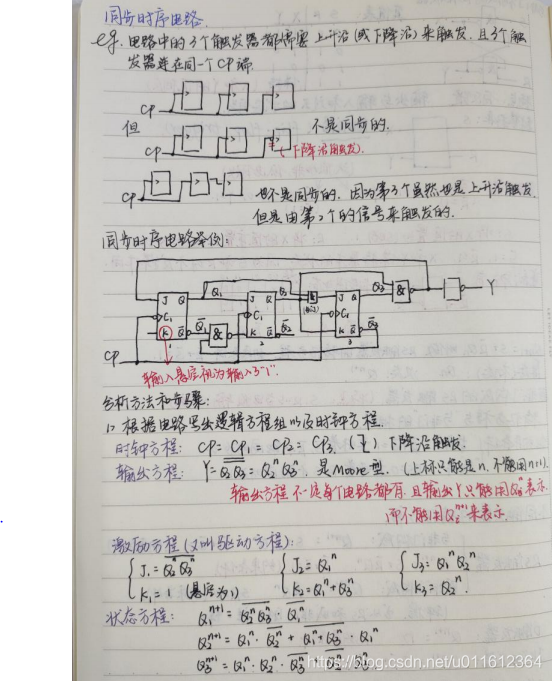 同步时序电路.
eg. 电路中的3个触发器都需要上升沿(或下降沿)来触发, 且3个触
发器连在同一个CP端.
CP
但
CP
不是同步的.
(下降沿触发)
CP
也不是同步的, 因为第3个虽然也是上升沿触发,
但是由第2个的信号来触发的.
同步时序电路举例:
J Q Q₁ J Q Q₂ & J Q Q₃ & Y
C₁ C₁ C₁
K Q̅ Q̅₁ & K Q̅ Q̅₂ K Q̅ Q̅₃
1 2 3
CP
输入悬空视为输入了"1".
分析方法和步骤:
1> 根据电路写出逻辑方程组以及时钟方程.
时钟方程: CP = CP₁ = CP₂ = CP₃. (↓) 下降沿触发.
输出方程: Y = Q₂Q₃ = Q₂ⁿQ₃ⁿ, 是Moore型. (上标只能是n, 不能用n+1).
输出方程不一定每个电路都有, 且输出Y只能用Q₂ⁿ表示
而不能用Q₂ⁿ⁺¹来表示.
激励方程(又叫驱动方程):
J₁ = Q₂ⁿQ₃ⁿ J₂ = Q₁ⁿ J₃ = Q₁ⁿQ₂ⁿ
K₁ = 1 (悬空为1) K₂ = Q₁ⁿ+Q₃ⁿ K₃ = Q₂ⁿ.
状态方程: Q₁ⁿ⁺¹ = Q₂ⁿQ₃ⁿ · Q₁ⁿ
Q₂ⁿ⁺¹ = Q₁ⁿ · Q₂ⁿ + Q₁ⁿ+Q₃ⁿ · Q₁ⁿ
Q₃ⁿ⁺¹ = Q₁ⁿ · Q₂ⁿ · Q₃ⁿ
https://blog.csdn.net/u011612364